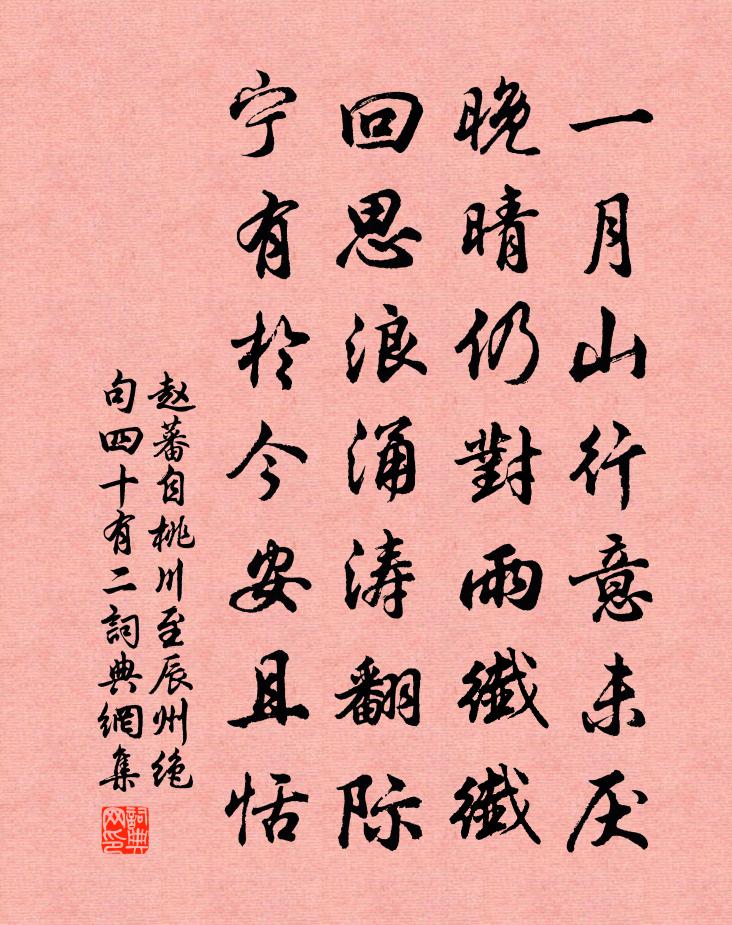 一月山行意未厌
晚晴仍對雨纖纖
回思浪涌涛翻际
宁有於今安且恬
赵蕃自桃川至辰州绝
句四十有二詞典網集
詞典网印